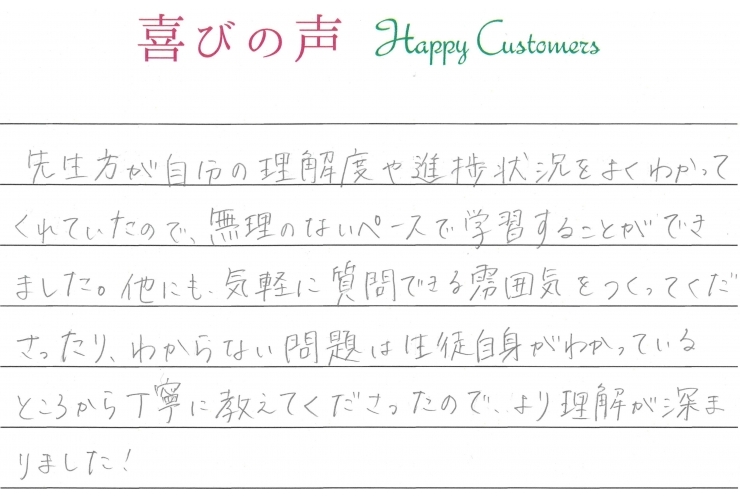 喜びの声 Happy Customers
先生方が自分の理解度や進捗状況をよくわかって
くれていたので、無理のないペースで学習することができ
ました。他にも、気軽に質問できる雰囲気をつくってくだ
さったり、わからない問題は生徒自身がわかっている
ところから丁寧に教えてくださったので、より理解が深ま
りました!